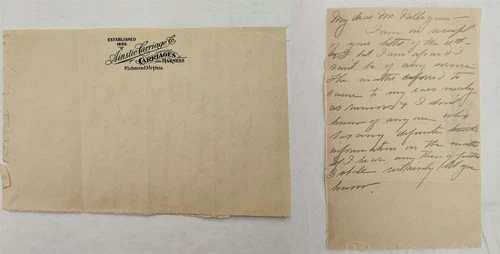 ESTABLISHED
1855.
Ainslie Carriage Co.
CARRIAGES AND HARNESS
Richmond, Virginia
My dear Mr.
I am in receipt
of your letter of the
but I am afraid I
can't be of any service.
The matter referred to
came to my ears merely
as rumors & I don't
know of any one who
has any definite
information on the matter.
If I hear any thing further
I shall certainly let you
know.